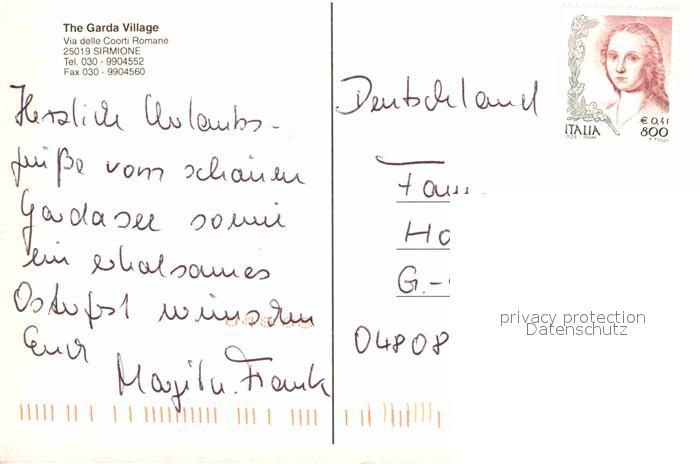 The Garda Village
Via delle Coorti Romane
25019 SIRMIONE
Tel. 030 - 9904552
Fax 030 - 9904560
Herzliche Urlaubs-
grüße vom schönen
Gardasee sowie
ein erholsames
Osterfest wünschen
Euch
Frank
Deutschland
Fam
Ho
G.-
04808
ITALIA
€ 0,41
800
privacy protection
Datenschutz